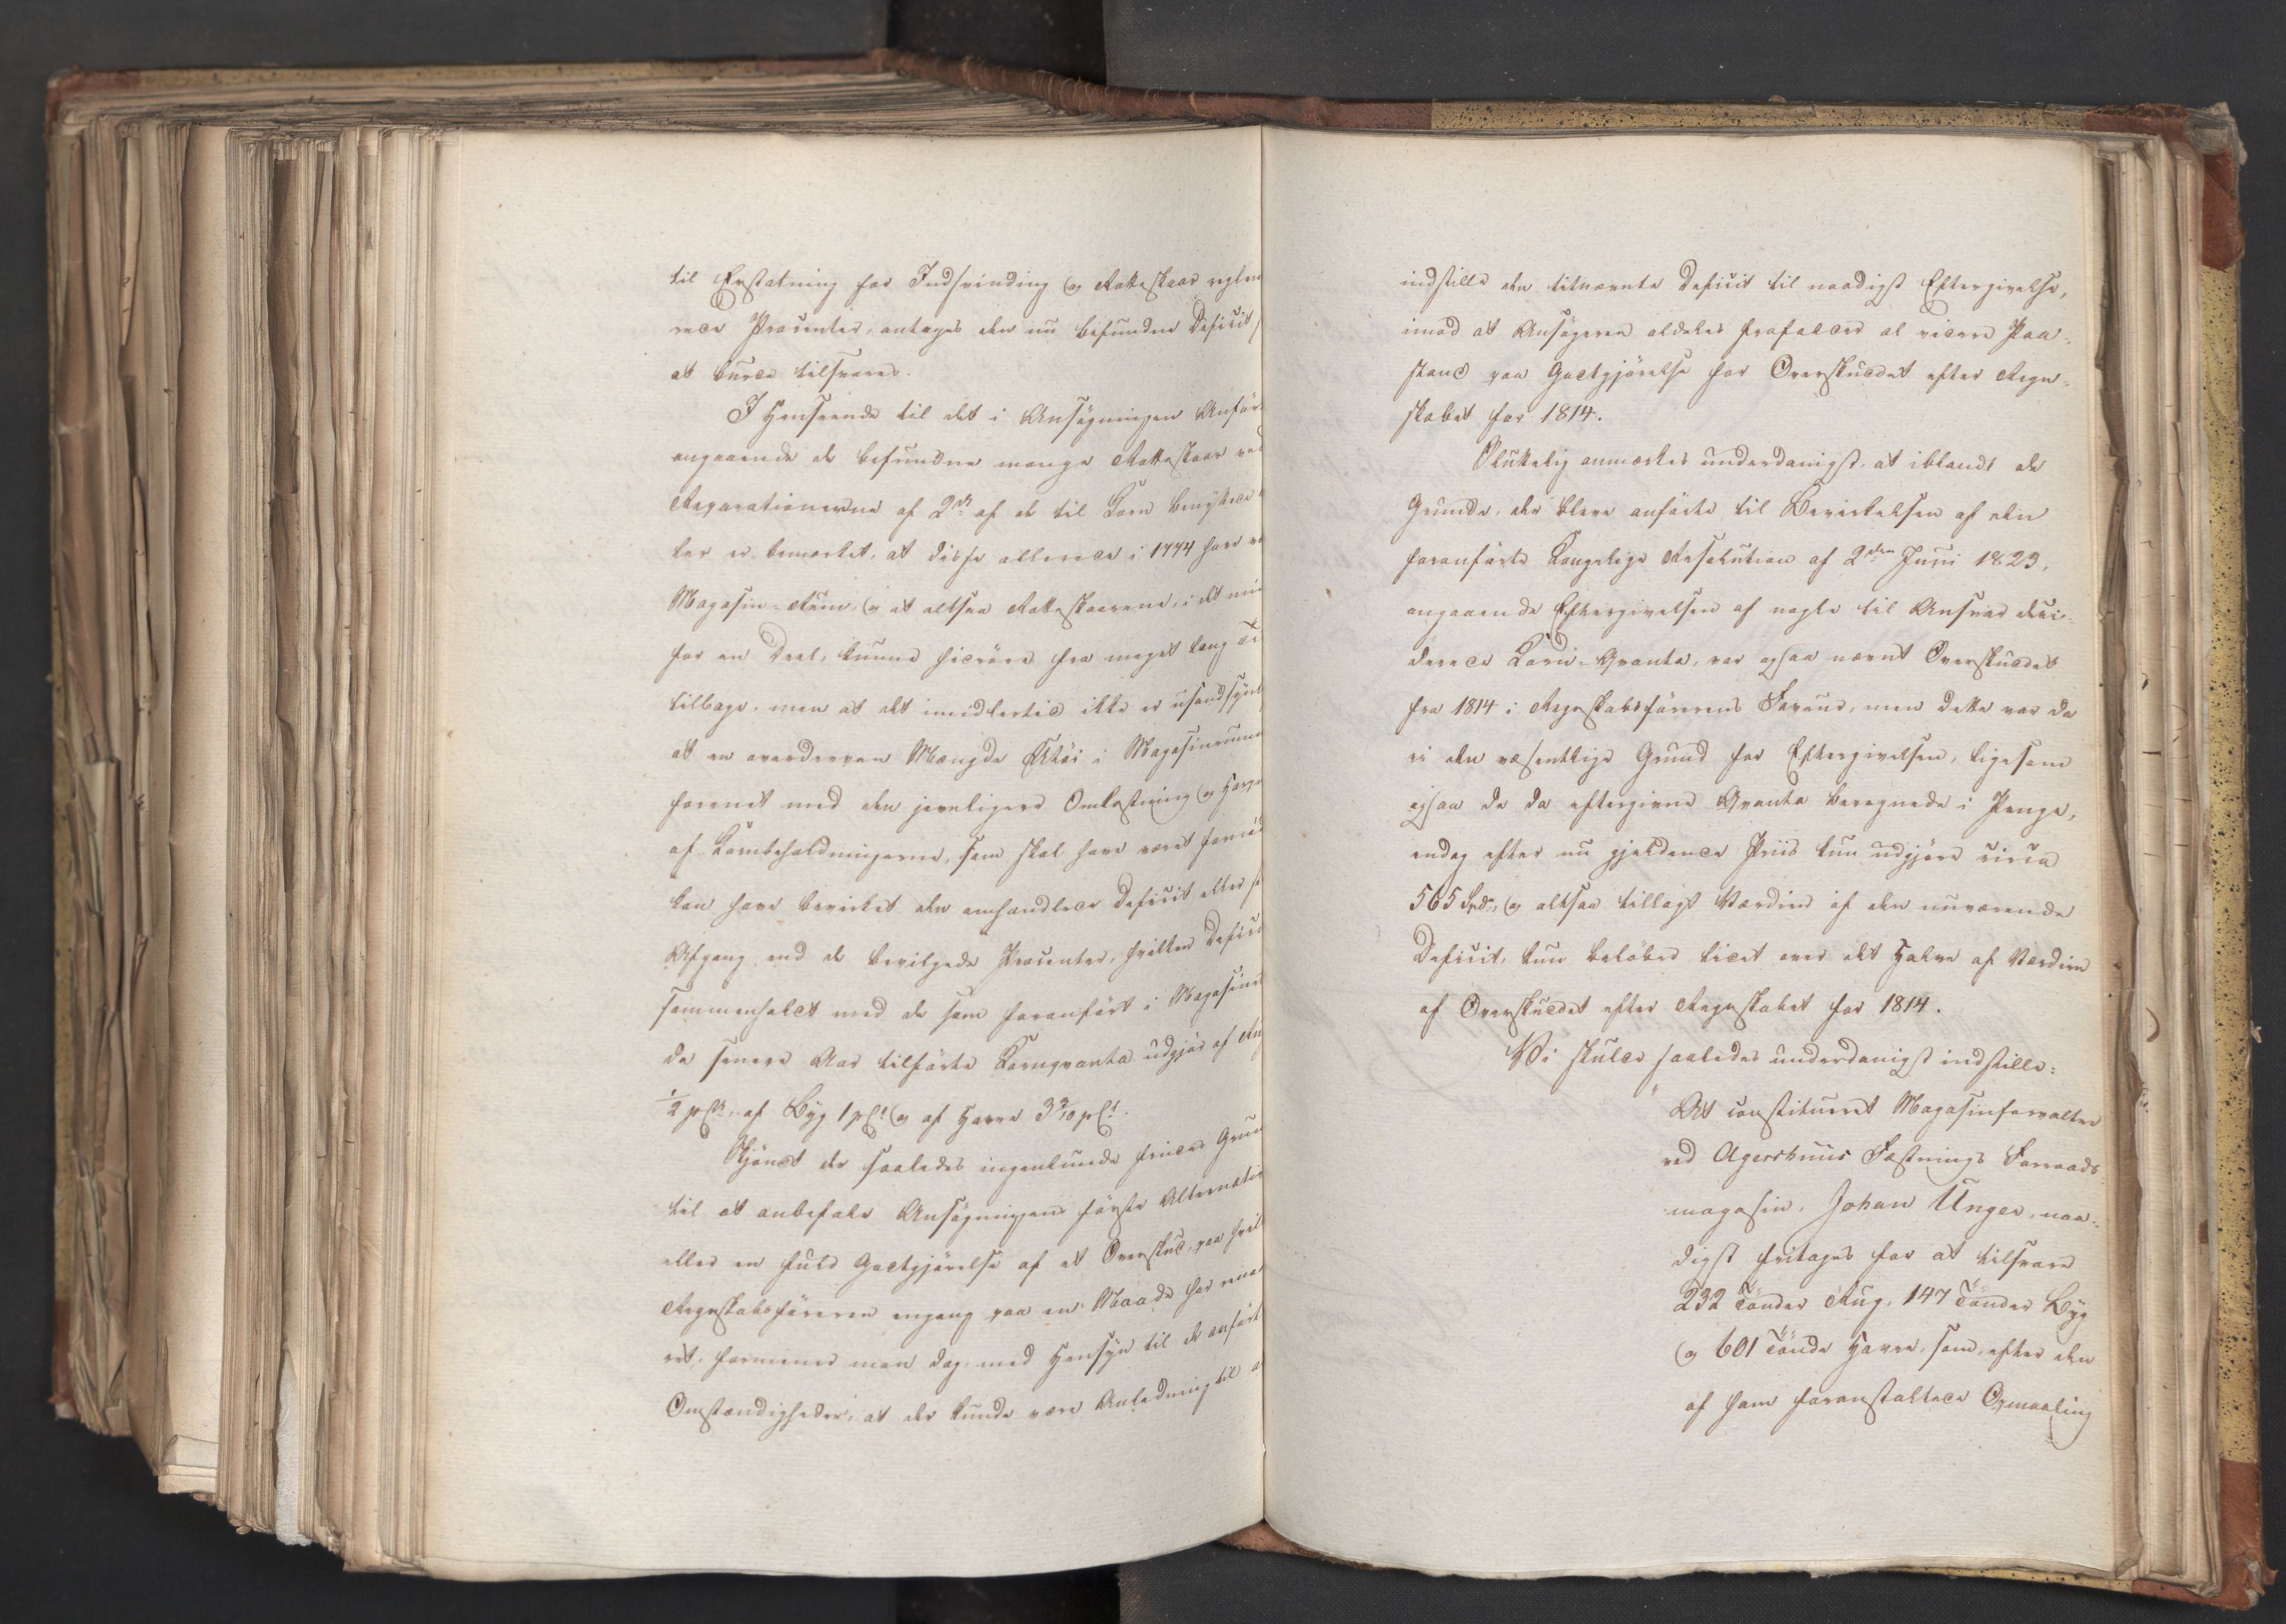 til Erstatning for Indsvinding og Rotteskaar reglem
rede Procenter, antages den nu befundne Deficit
at burde tilsvares.
I Henseende til det i Ansøgningen Anfør
angaaende de befundne mange Rotteskaar ved
Reparationerne af 2de af de til Korn benyttede
ter er bemærket, at disse allerede i 1774 have
Magasin-Rum, og at altsaa Rotteskaarene, i det min
for en Deel, kunne hidrøre fra meget lang Ti
tilbage, men at det imidlertid ikke er usandsynl
at en overdreven Mængde Utøi i Magasinrumm
forenet med den jevnligere Omkastning og Harp
af Kornbeholdningerne, som skal have været fornød
kan have bevirket den omhandlede Deficit eller
Afgang end de bevilgede Procenter, hvilken Defici
sammenholdt med de som foranført i Magasinet
de senere Aar tilførte Kornqvanta udgjør af Ru
1/2 pCt., af Byg 1 pCt. og af Havre 3 9/10 pCt.
Skjøndt der saaledes ingenlunde findes Grun
til at anbefale Ansøgningens første Alternativ
eller en fuld Godtgjørelse af et Overskud, paa hvil
Regnskabsføreren engang paa en Maade har
ret, formener man dog, med Hensyn til de anført
Omstændigheder, at der kunde være Anledning til a
indstille den sidtnævnte Deficit til naadigst Eftergivelse,
imod at Ansøgeren aldeles frafalder al videre Paa-
stand paa Godtgjørelse for Overskudet efter Regn-
skabet for 1814.
Slutelig anmærkes underdanigst, at iblandt de
Grunde, der bleve anførte til Bevirkelsen af den
foranførte Kongelige Resolution af 2den Juni 1823,
angaaende Eftergivelsen af nogle til Ansvar deci-
derede Korn-Qvanta, var ogsaa nævnt Overskudet
fra 1814 i Regnskabsførerens Faveur, men dette var da
ei den væsentlige Grund for Eftergivelsen, ligesom
ogsaa de da eftergivne Qvanta beregnede i Penge,
endog efter nu gjeldende Priis kun udgjøre circa
565 Spd., og altsaa tillagt Værdien af den nuværende
Deficit, kun beløber lidet over det Halve af Værdien
af Overskudet efter Regnskabet for 1814.
Vi skulde saaledes underdanigst indstille:
"At constitueret Magasinforvalter
ved Agershuus Fæstnings Forraads-
magasin, Johan Unger, naa-
digst fritages for at tilsvare
232 Tønder Rug, 147 Tønder Byg
og 601 Tønde Havre, som, efter den
af ham foranstaltede Opmaaling